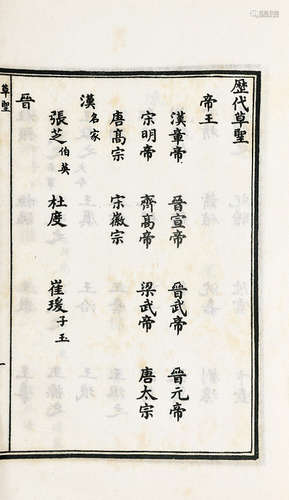 歷代草聖
帝王
漢章帝 晉宣帝 晉武帝 晉元帝
宋明帝 齊高帝 梁武帝 唐太宗
唐高宗 宋徽宗
漢名家
張芝伯英 杜度 崔瑗子玉
晉
草聖